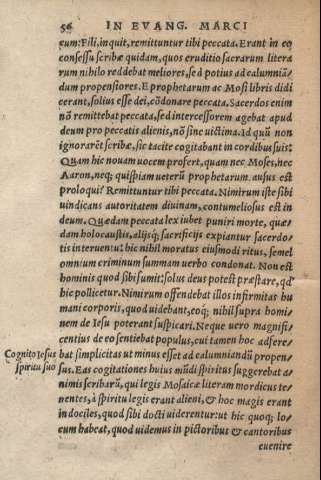 56 IN EVANG. MARCI
eum: Fili, inquit, remittuntur tibi peccata. Erant in eo
consessu scribæ quidam, quos eruditio sacrarum litera
rum nihilo reddebat meliores, sed potius ad calumniã/
dum propensiores. E prophetarum ac Mosi libris didi
cerant, solius esse dei, cõdonare peccata. Sacerdos enim
nõ remittebat peccata, sed intercessorem agebat apud
deum pro peccatis alienis, nõ sine uictima. Id quũ non
ignorarẽt scribæ, sic tacite cogitabant in cordibus suis:
Quam hic nouam uocem profert, quam nec Moses, nec
Aaron, neq; quispiam ueterũ prophetarum ausus est
proloqui? Remittuntur tibi peccata. Nimirum iste sibi
uindicans autoritatem diuinam, contumeliosus est in
deum. Quædam peccata lex iubet puniri morte, quæ/
dam holocaustis, alijsq; sacrificijs expiantur sacerdo/
tis interuentu: hic nihil moratus eiusmodi ritus, semel
omnium criminum summam uerbo condonat. Non est
hominis quod sibi sumit: solus deus potest præstare, qd'
hic pollicetur. Nimirum offendebat illos infirmitas hu
mani corporis, quod uidebant, eoq; nihil supra homi/
nem de Iesu poterant suspicari. Neque uero magnifi/
centius de eo sentiebat populus, cui tamen hoc adfere/
Cognito Iesus spiritu suo
bat simplicitas ut minus esset ad calumniandũ propen/
sus. Eas cogitationes huius mũdi spiritus suggerebat a/
nimis scribarũ, qui legis Mosaicæ literam mordicus te/
nentes, à spiritu legis erant alieni, & hoc magis erant
indociles, quod sibi docti uiderentur: ut hic quoq; lo/
cum habeat, quod uidemus in pictoribus & cantoribus
euenire